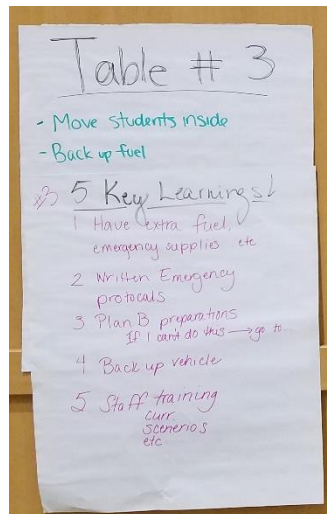 Table # 3
- Move students inside
- Back up fuel
5 Key Learnings!
1 Have extra fuel,
emergency supplies etc
2 Written Emergency
protocals
3 Plan B preparations
If I can't do this → go to...
4 Back up vehicle
5 Staff training
curr.
scenerios
etc